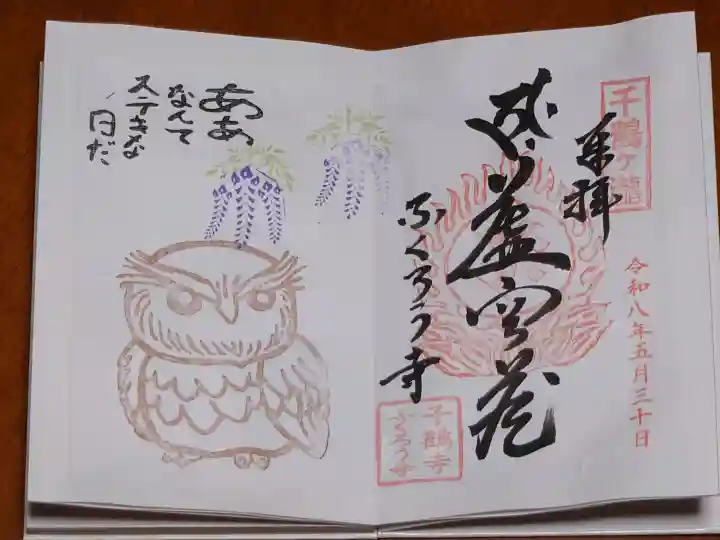 奉拝
令和八年五月三十日
虚空蔵
ふくろう寺
千鶴寺
ふくろう寺
ああ
なんて
ステキな
日だ